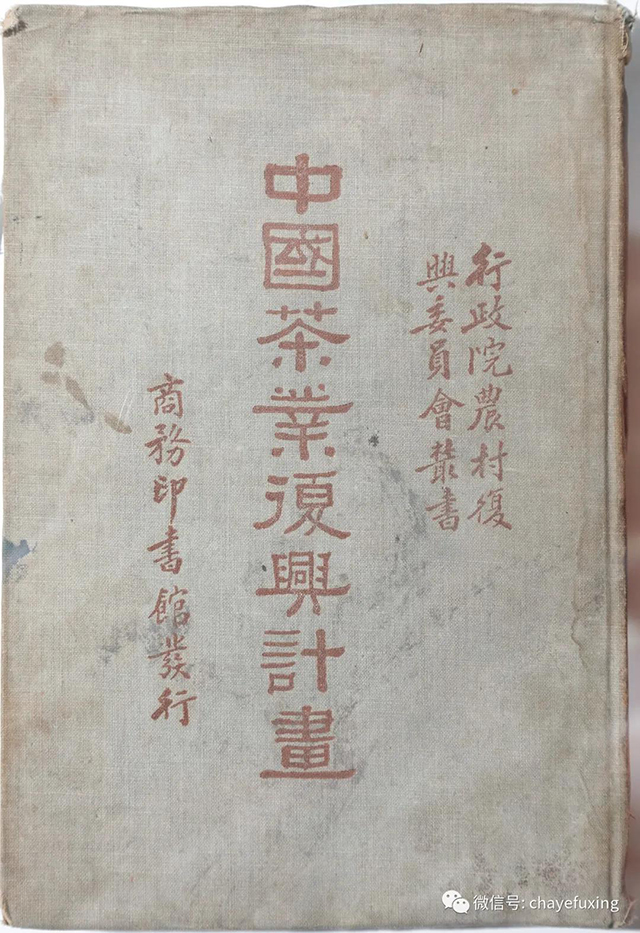 行政院農村復
興委員會叢書
中國茶業復興計畫
商務印書館發行
微信号: chayefuxing